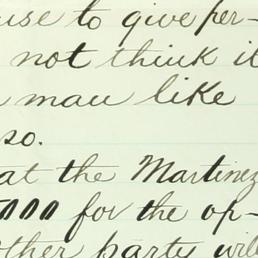 use to give per-
not think it
man like
so.
at the Martinez
000 for the op-
other party will